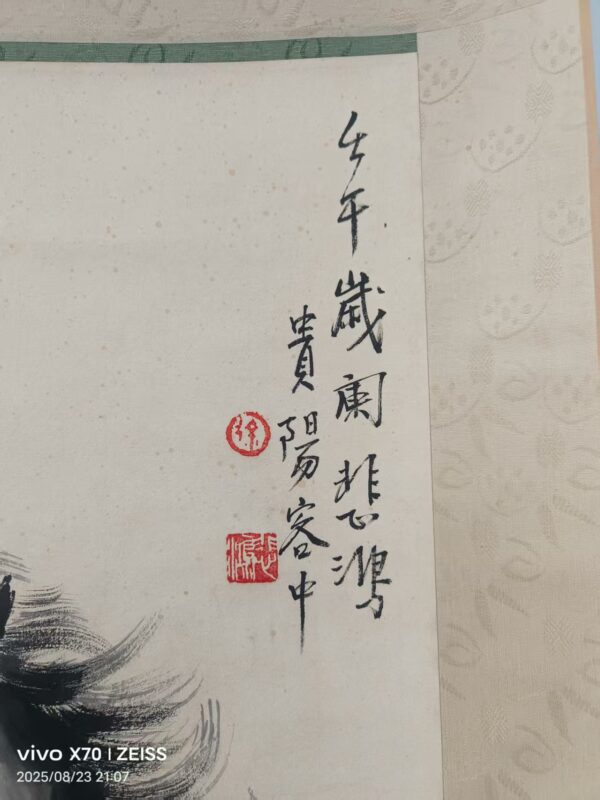 壬午歲闌悲鴻
貴陽客中
徐
悲鴻
vivo X70 | ZEISS
2025/08/23 21:07